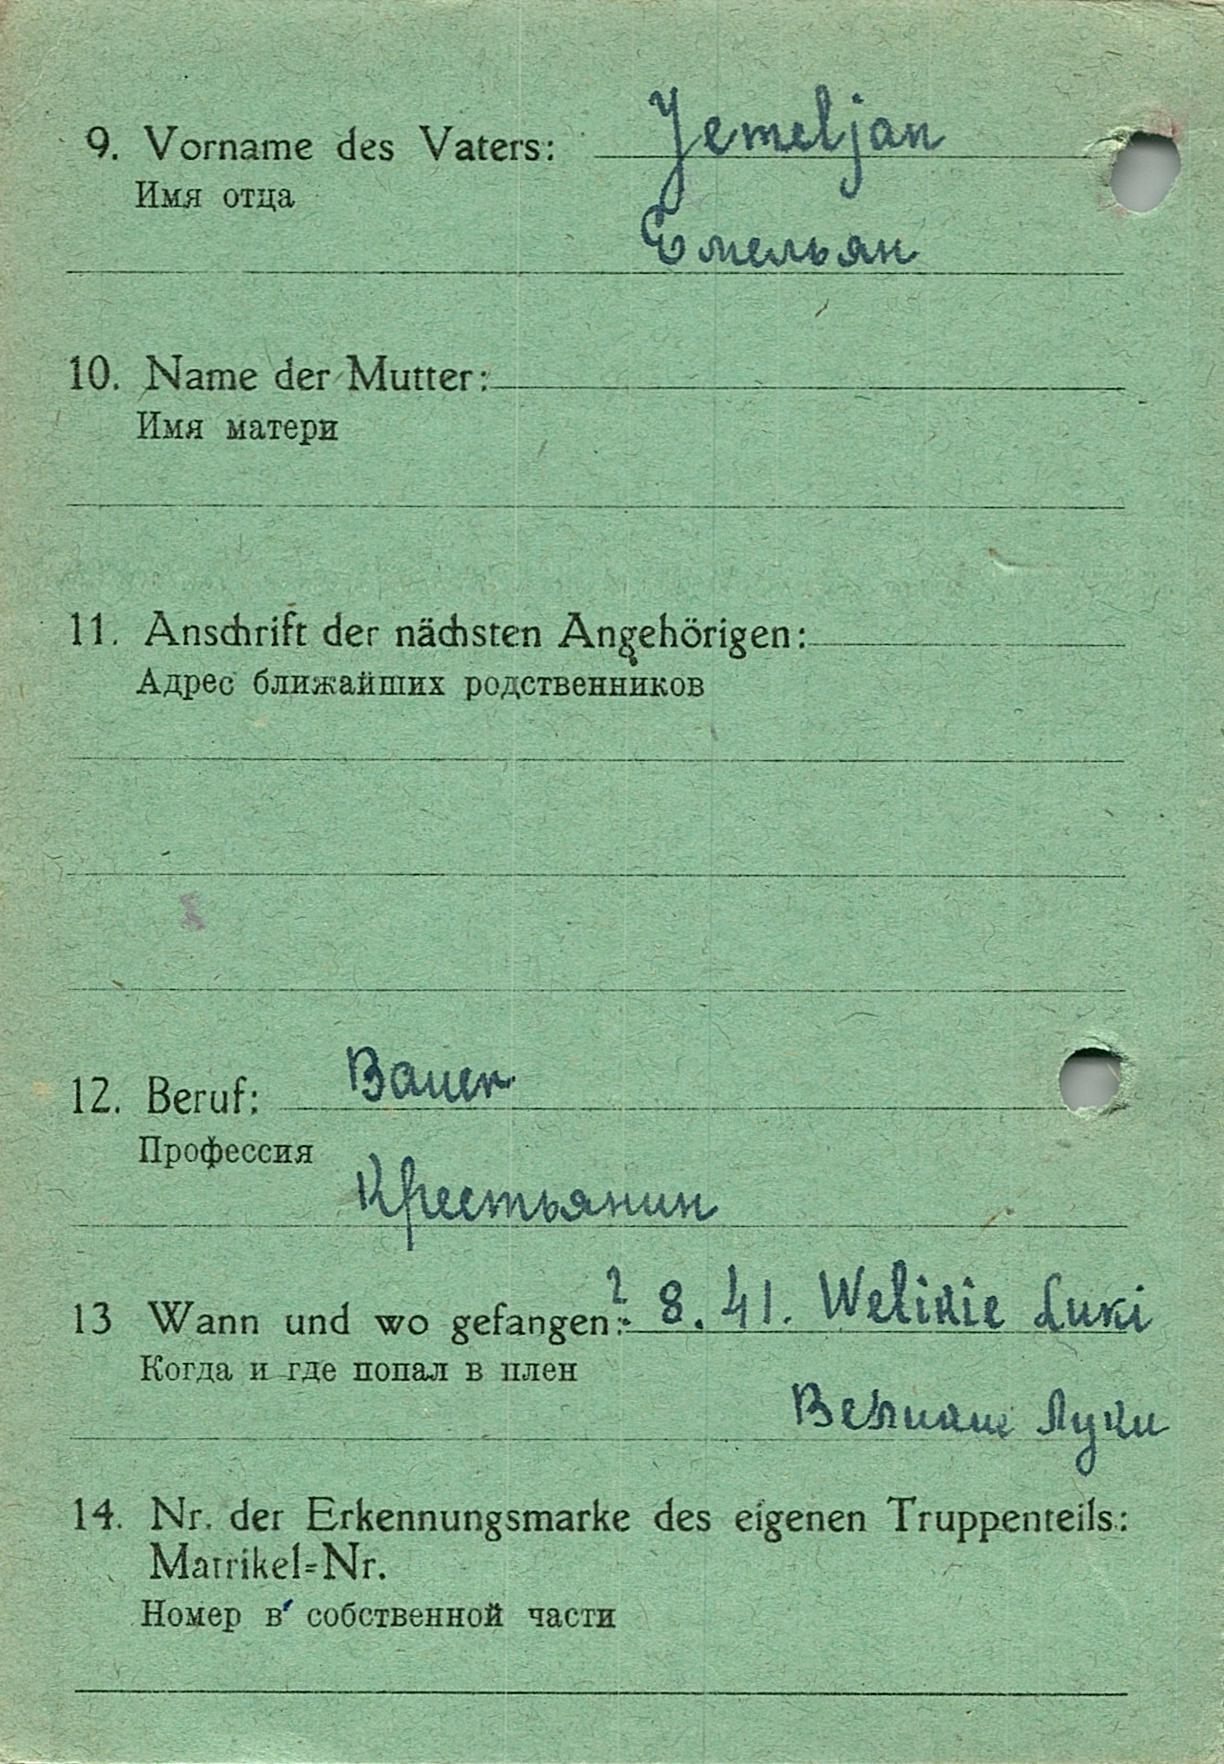 9. Vorname des Vaters: Jemeljan
Имя отца
Емельян
10. Name der Mutter:
Имя матери
11. Anschrift der nächsten Angehörigen:
Адрес ближайших родственников
12. Beruf: Bauer
Профессия
Крестьянин
13 Wann und wo gefangen: ? 8. 41. Welikie Luki
Когда и где попал в плен
Великие Луки
14. Nr. der Erkennungsmarke des eigenen Truppenteils:
Matrikel-Nr.
Номер в собственной части